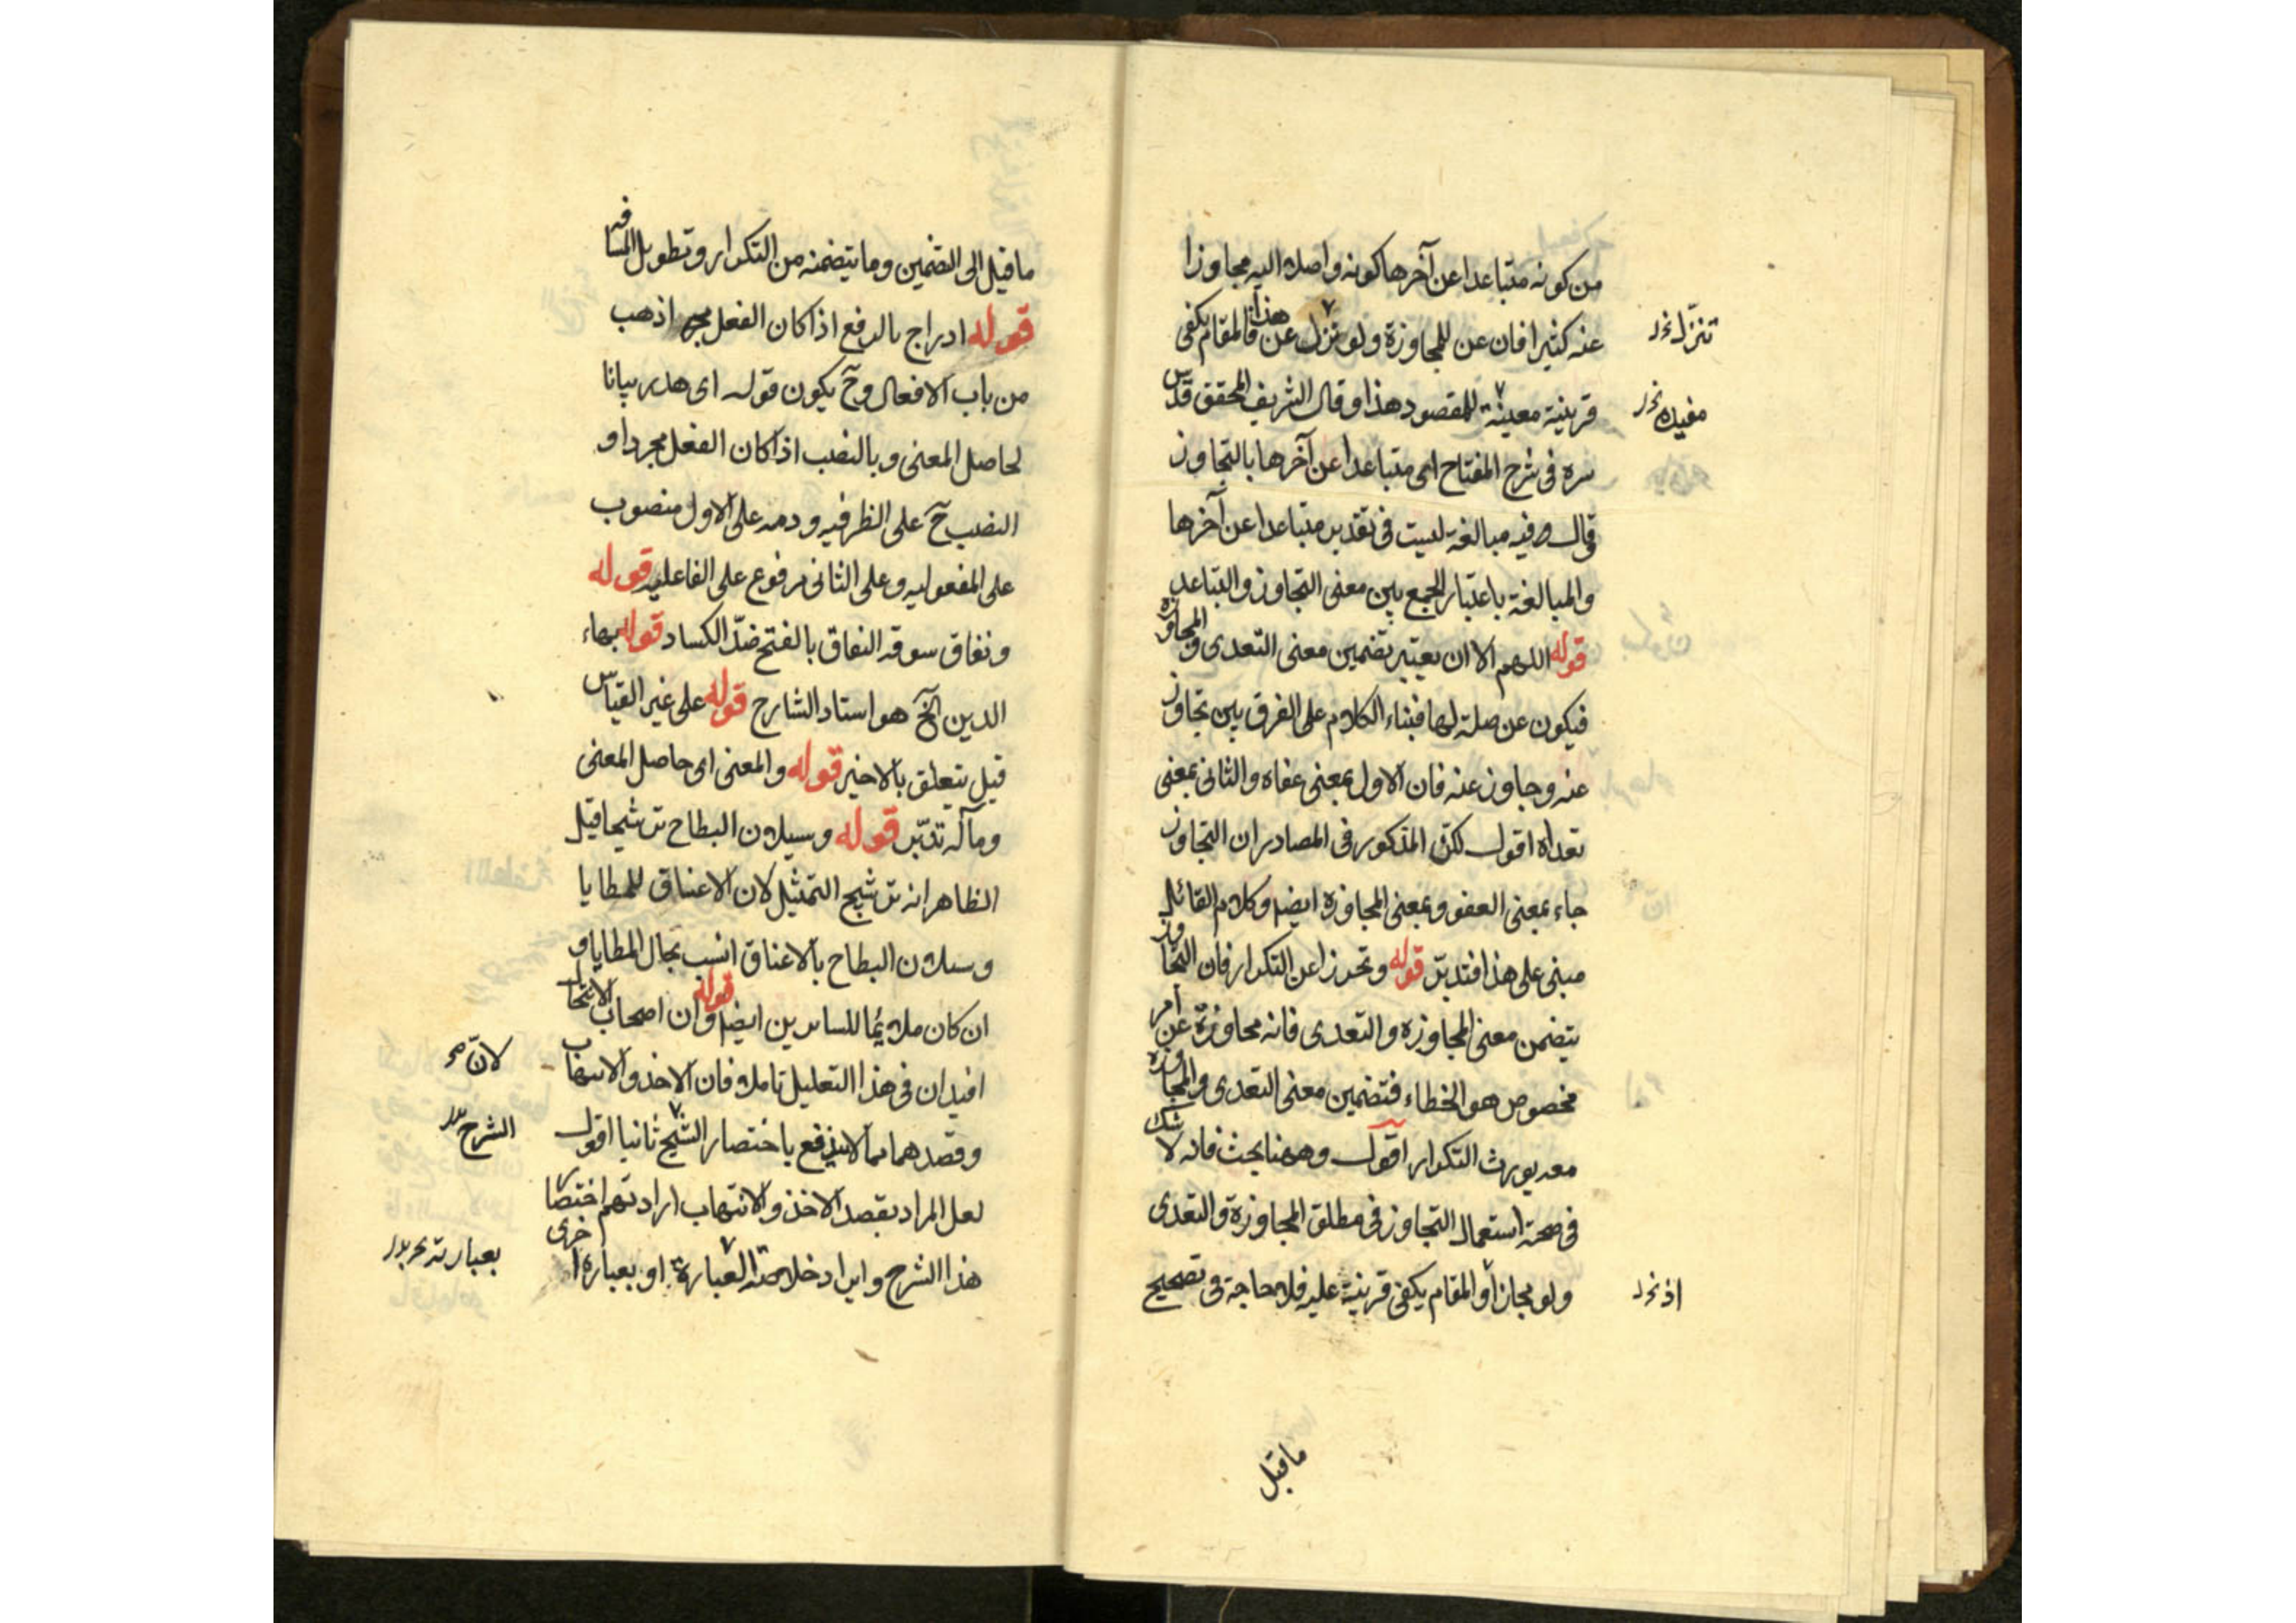 من كونه متباعدا عن آخرها كونه واصلا اليه مجاوزا
عنه كثيرا فان عن للمجاوزة ولو نزل عن هذا فالمقام يكفى
تنزّل
قرينة معينة للمقصود هذا وقال الشريف المحقق قدس
مفيده
سره فى شرح المفتاح اى متباعدا عن آخرها بالتجاوز
وقال فيه مبالغة ليست فى تقدير متباعدا عن آخرها
والمبالغة باعتبار الجمع بين معنى التجاوز والتباعد
قوله اللهم الا ان يعتبر تضمين معنى التعدى والمجاوزة
فيكون عن صلة لها فبناء الكلام على الفرق بين تجاوز
عنه وجاوز عنه فان الاول بمعنى عفاه والثانى بمعنى
تعداه اقول لكن المذكور فى المصادر ان التجاوز
جاء بمعنى العفو وبمعنى المجاوزة ايضا وكلام القائل
مبنى على هذا فتدبّر قوله وتحرزا عن التكرار فان التجاوز
يتضمن معنى المجاوزة والتعدى فانه مجاوزة عن امر
مخصوص هو الخطاء فتضمين معنى التعدى والمجاوزة
معه يورث التكرار اقول وههنا بحث فانه لا شك
فى صحة استعمال التجاوز فى مطلق المجاوزة والتعدى
ولو مجازا والمقام يكفى قرينة عليه فلا حاجة فى تصحيح
اذ
ما قيل
ما قيل الى التضمين وما يتضمنه من التكرار وتطويل المسافه
قوله ادراج بالرفع اذا كان الفعل اذهب
من باب الافعال وح يكون قوله اى هدر بيانا
لحاصل المعنى وبالنصب اذا كان الفعل مجردا و
النصب ح على الظرفيه ودمه على الاول منصوب
على المفعوليه وعلى الثانى مرفوع على الفاعليه قوله
ونفاق سوقه النفاق بالفتح ضدّ الكساد قوله بهاء
الدين الخ هو استاد الشارح قوله على غير القياس
قيل يتعلق بالاخير قوله والمعنى اى حاصل المعنى
ومآله تدبّر قوله وسيلان البطاح ترشيحا قيل
الظاهر انه ترشيح التمثيل لان الاعناق للمطايا
وسيلان البطاح بالاعناق انسب بحال المطايا و
ان كان ملايما للسايرين ايضا قوله وان اصحاب الانتحال
افيد ان فى هذا التعليل تاملا فان الاخذ والانتهاب
لانّ
وقصدهما مما لا يندفع باختصار الشيخ ثانيا اقول
الشرح
لعل المراد بقصد الاخذ والانتهاب ارادتهم اختصار
هذا الشرح وايراد خلاصة العبارة او بعبارة اخرى
بعبارته